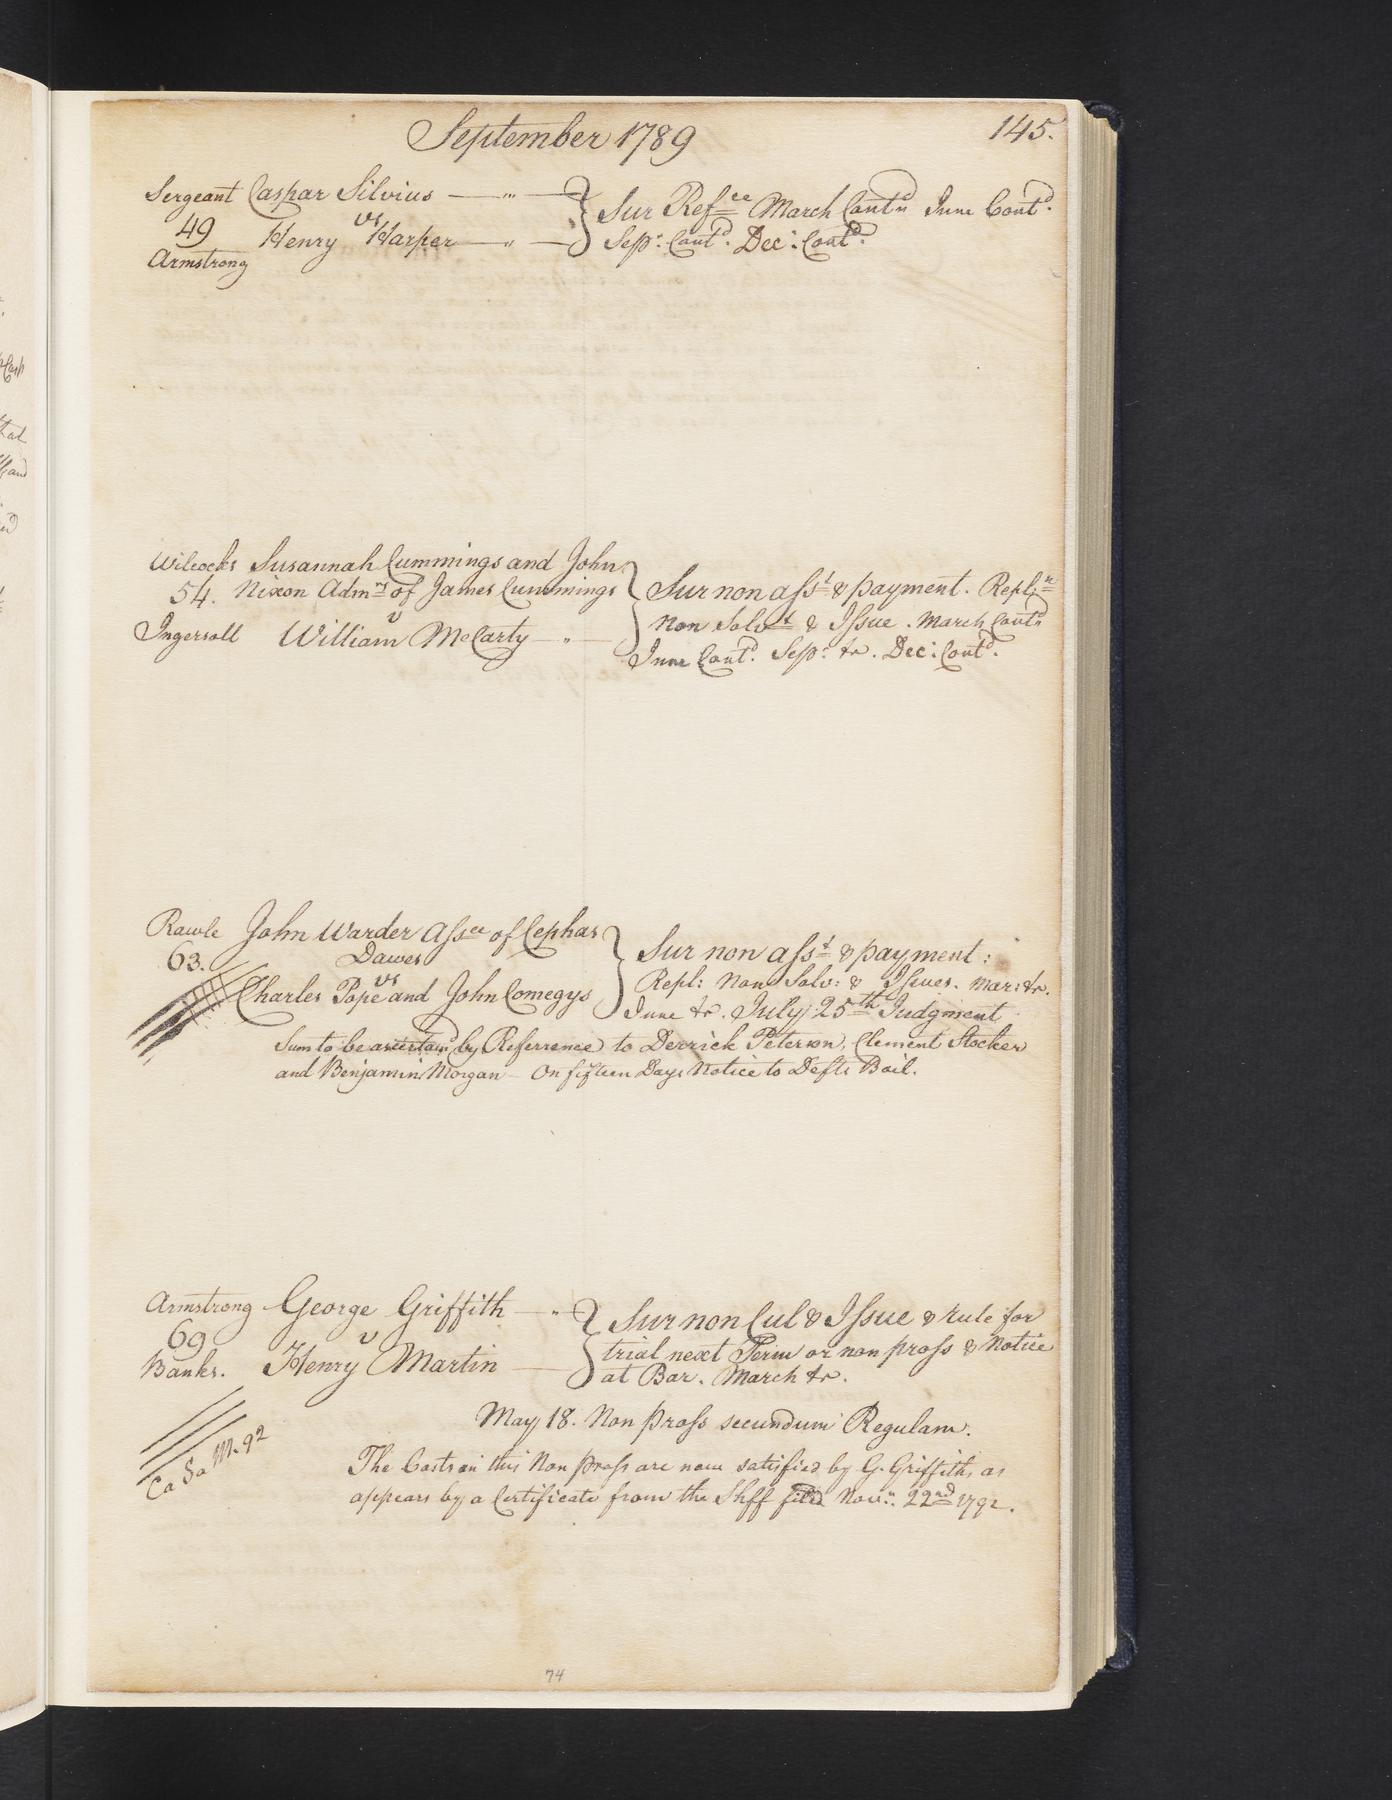 September 1789
145.
Sergeant Caspar Silvius — " —
49 vs
Henry Harper — " —
Armstrong
Sur Refce March Contd June Contd.
Sepr: Contd. Dec: Contd.
Wilcocks Susannah Cummings and John
54. Nixon Admrs of James Cummings
v
Ingersoll William McCarty — " —
Sur non asst & payment. Repln
Non Solvt & Issue. March Contd
June Contd. Sepr: &c. Dec: Contd.
Rawle John Warder Assee of Cephas
63. Dawes
vs
Charles Pope and John Comegys
Sur non asst & payment:
Repl: Non Solv: & Issues. Mar: &c.
June &c. July 25th Judgment
Sum to be ascertaind by Referrence to Derrick Peterson, Clement Stocker
and Benjamin Morgan — On fifteen Days Notice to Defts Bail.
Armstrong George Griffith — "
69 v
Banks. Henry Martin —
Sur non Cul & Issue & rule for
trial next Term or non pross & Notice
at Bar. March &c.
May 18. Non Pross secundum Regulam.
Ca Sa M. 92
The Costs on this Non Pross are now satisfied by G. Griffith, as
appears by a Certificate from the Shff filed Novr. 22nd 1792.
74